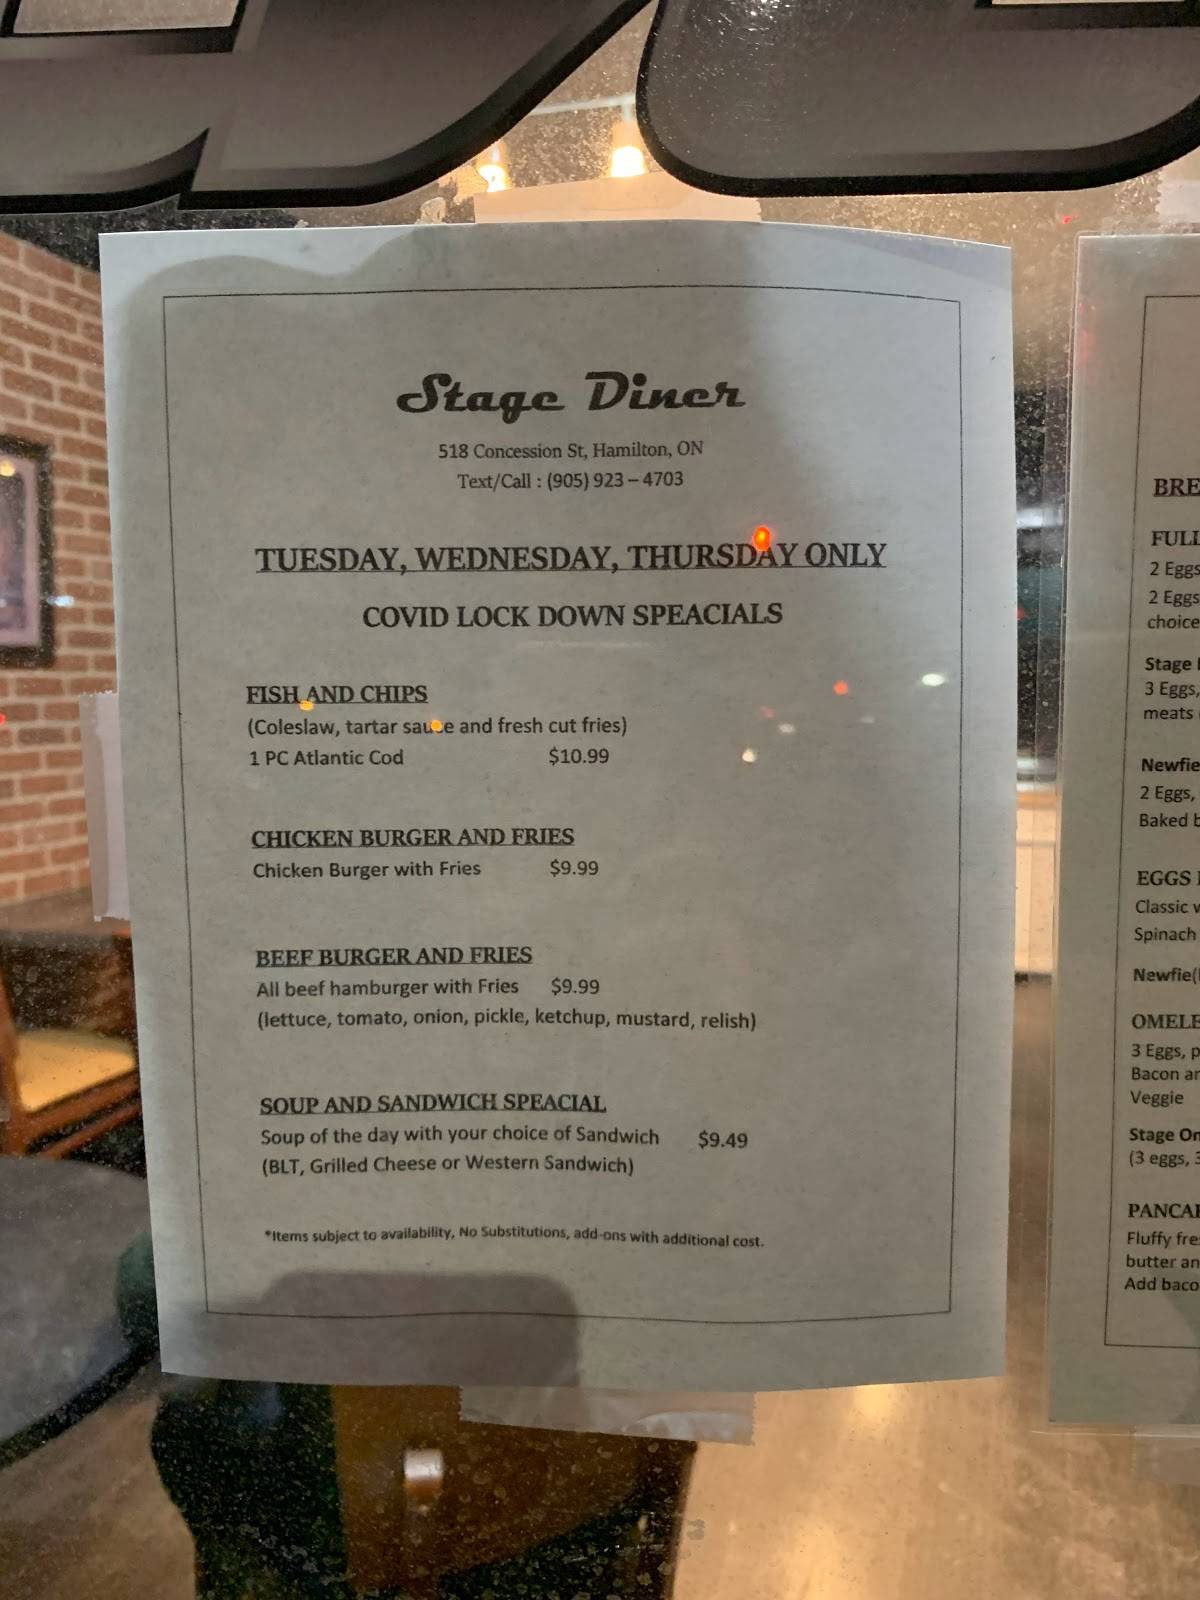 Stage Diner
518 Concession St, Hamilton, ON
Text/Call : (905) 923 – 4703
TUESDAY, WEDNESDAY, THURSDAY ONLY
COVID LOCK DOWN SPEACIALS
FISH AND CHIPS
(Coleslaw, tartar sauce and fresh cut fries)
1 PC Atlantic Cod $10.99
CHICKEN BURGER AND FRIES
Chicken Burger with Fries $9.99
BEEF BURGER AND FRIES
All beef hamburger with Fries $9.99
(lettuce, tomato, onion, pickle, ketchup, mustard, relish)
SOUP AND SANDWICH SPEACIAL
Soup of the day with your choice of Sandwich $9.49
(BLT, Grilled Cheese or Western Sandwich)
*Items subject to availability, No Substitutions, add-ons with additional cost.
2 Eggs
2 Eggs
choice
Stage
3 Eggs,
meats
Newfie
2 Eggs,
Baked
EGGS
Classic
Spinach
Newfie(
3 Eggs,
Bacon
Veggie
Stage
(3 eggs,
Fluffy
butter
Add